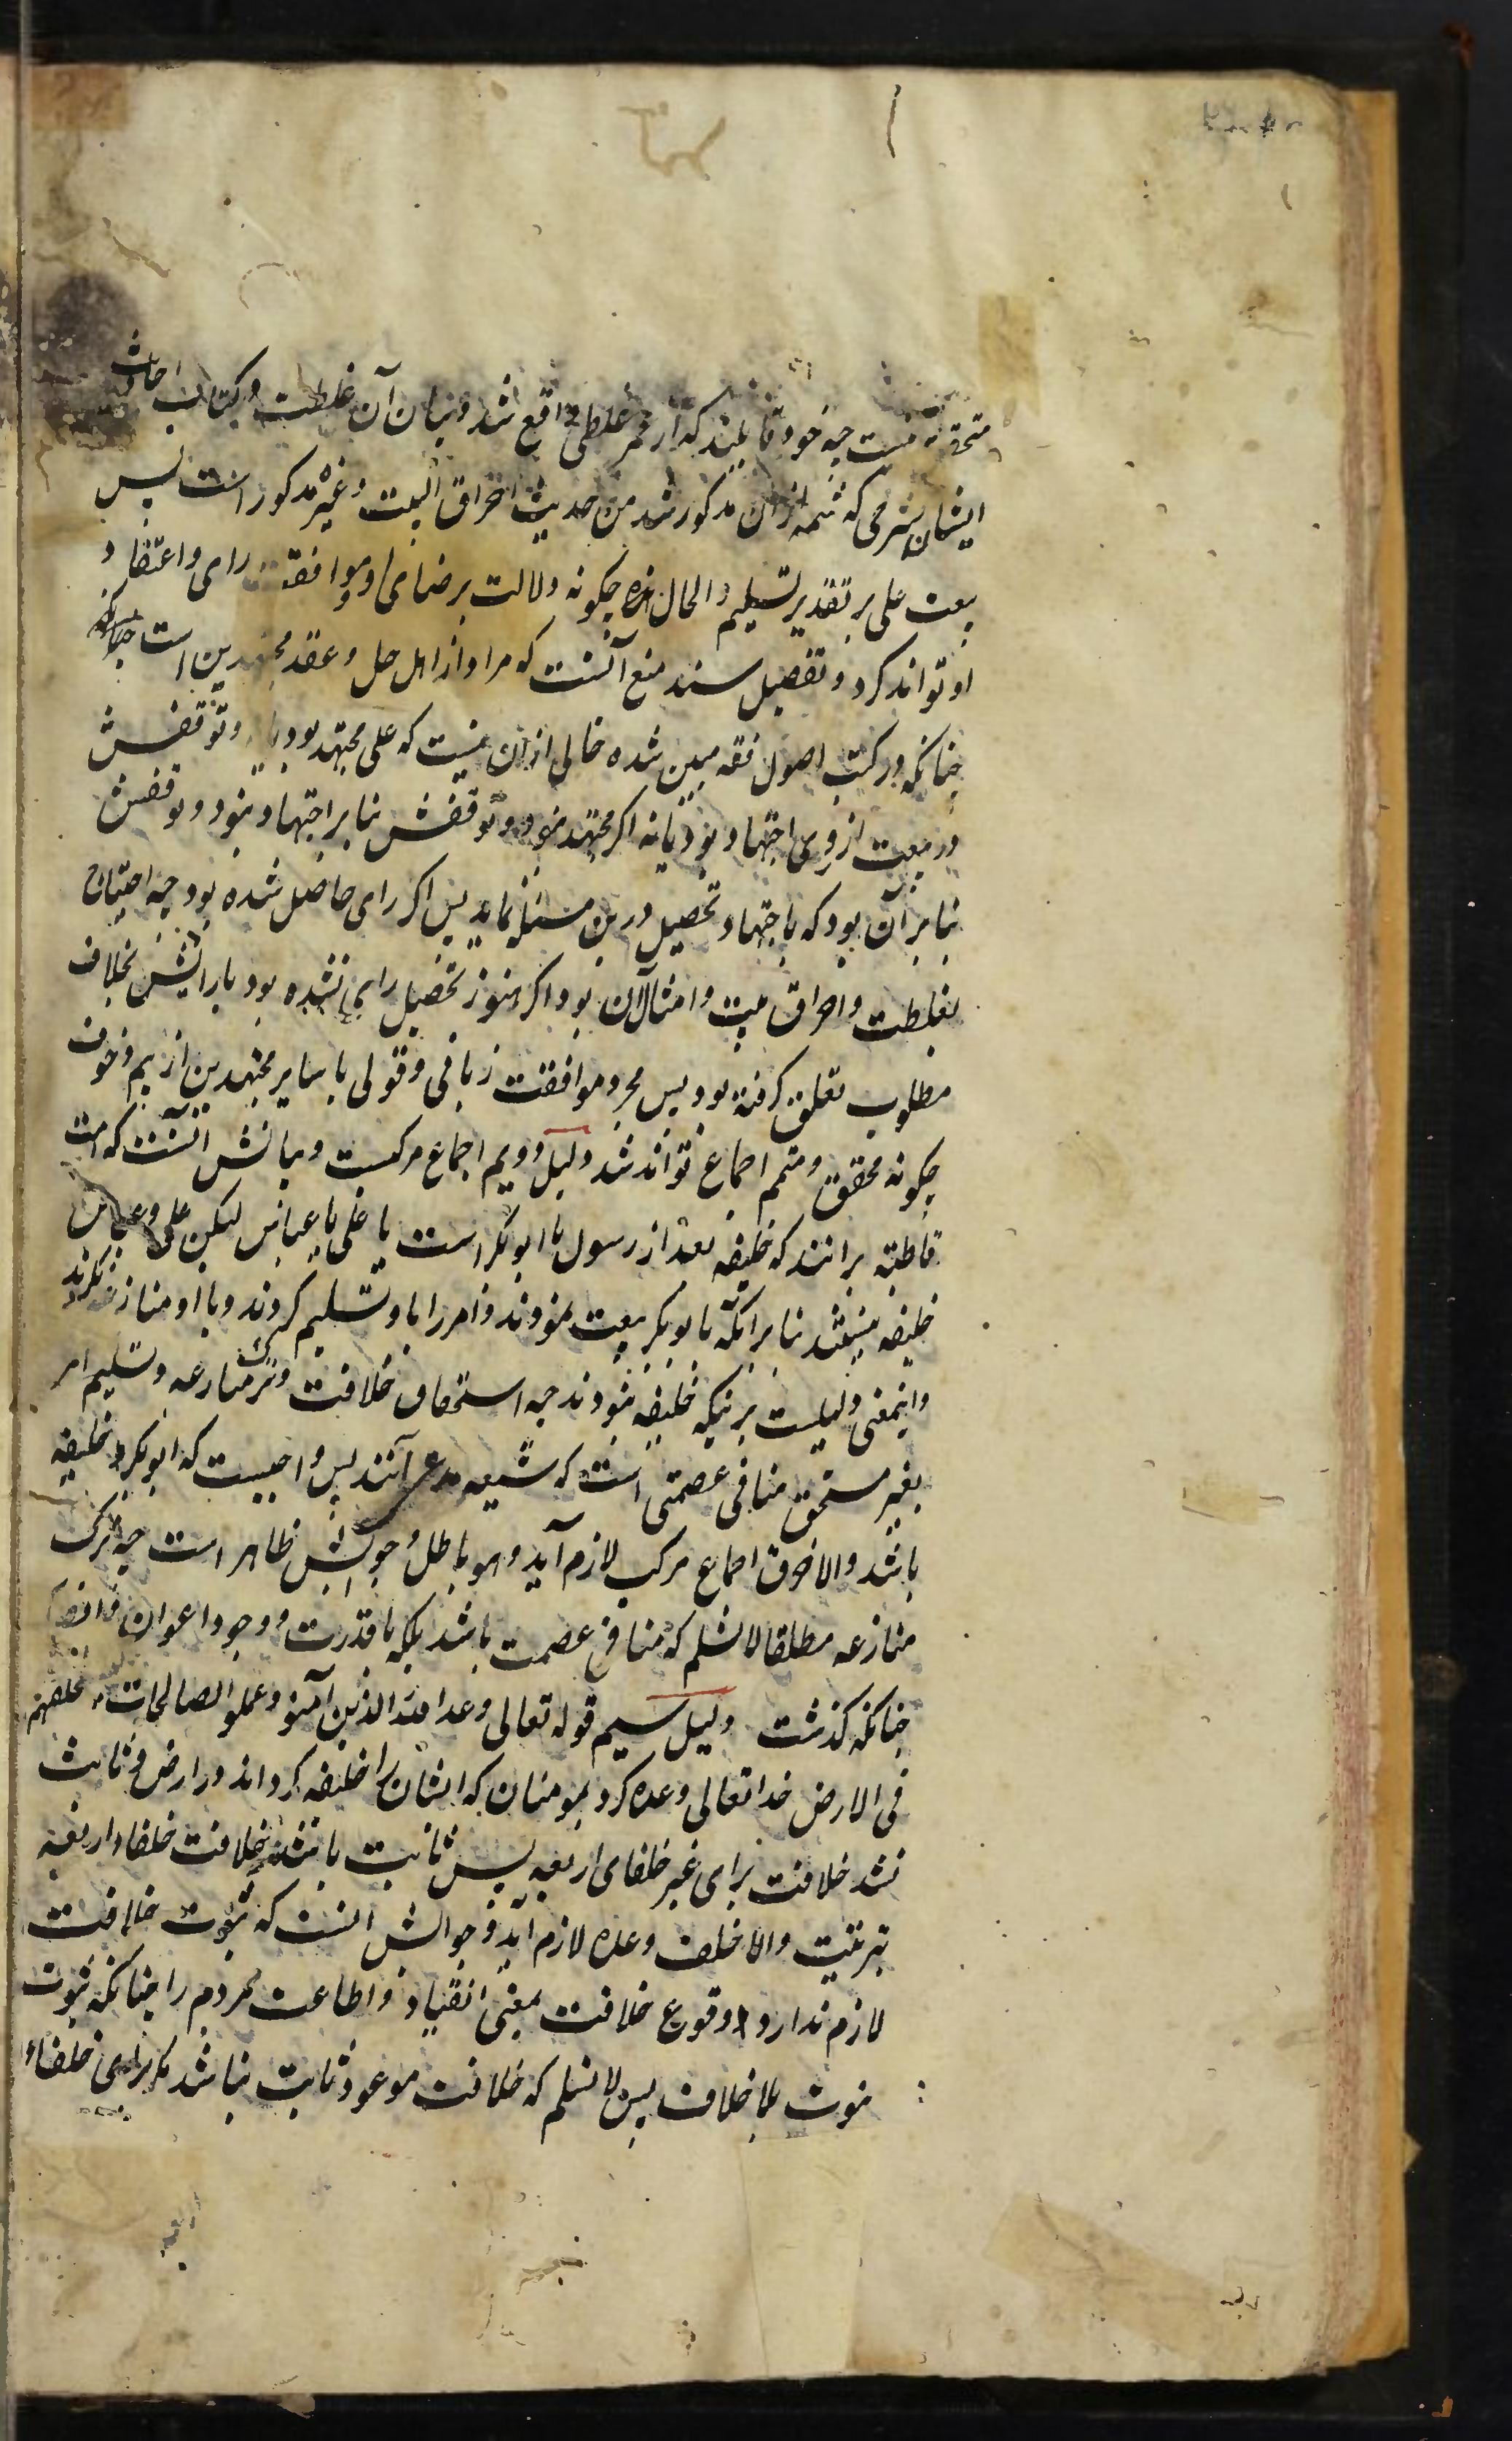 متحقق نیست چه خود قایلند که از عمر غلطی واقع شد و بیان آن غلطت در کتاب احادیث
ایشان بشرحی که شمه ازان مذکور شد من حدیث احراق البیت و غیره مذکور است پس
بیعت علی بر تقدیر تسلیم و الحال هذه چکونه دلالت بر رضای او و موافقت رای و اعتقاد
او تواند کرد و تفصیل سند منع آنست که مراد از اهل حل و عقد مجتهدین است
چنانکه در کتب اصول فقه مبین شده خالی ازان نیست که علی مجتهد بود یا و توقفش
در بیعت از روی اجتهاد بود یا نه اکر مجتهد نبود و توقفش بنا بر اجتهاد نبود و توقفش
بنا بر آن بود که باجتهاد تحصیل درین مسئله نماید پس اکر رای حاصل شده بود چه احتیاج
بغلطت و احراق بیت و امثال آن بود اکر هنوز تحصیل رای نشده بود یا رایش بخلاف
مطلوب تعلق کرفته بود پس مجرد موافقت زبانی و قولی با سایر مجتهدین از بیم و خوف
چکونه محقق و متمم اجماع تواند شد دلیل دویم اجماع مرکبست و بیانش آنست که امت
قاطبة برانند که خلیفه بعد از رسول یا ابوبکر است یا علی یا عباس لیکن علی و عباس
خلیفه نیستند بنا بر آنکه با ابوبکر بیعت نمودند و امر را باو تسلیم کردند و با او منازعه نکردند
و اینمعنی دلیلست برینکه خلیفه نبودند چه استحقاق خلافت و ترک منازعه و تسلیم امر
بغیر مستحق منافی عصمتی است که شیعه مدعی آنند پس واجبست که ابوبکر خلیفه
باشد و الا خرق اجماع مرکب لازم آید و هو باطل و جوابش ظاهر است چه ترک
منازعه مطلقا لا نسلم که منافی عصمت باشد بلکه با قدرت و وجود اعوان و انصار
چنانکه کذشت دلیل سیم قوله تعالی وعد الله الذین آمنو و عملو الصالحات لیستخلفنهم
فی الارض خداتعالی وعده کرد بمومنان که ایشان را خلیفه کرداند در ارض و ثابت
نشد خلافت برای غیر خلفای اربعه پس ثابت باشد خلافت خلفاء اربعه
بترتیب و الا خلف وعده لازم آید و جوابش آنست که ثبوت خلافت
لازم ندارد وقوع خلافت بمعنی انقیاد و اطاعت مردم را چنانکه ثبوت
نبوت بلا خلاف پس لا نسلم که خلافت موعود ثابت نباشد مکر برای خلفاء